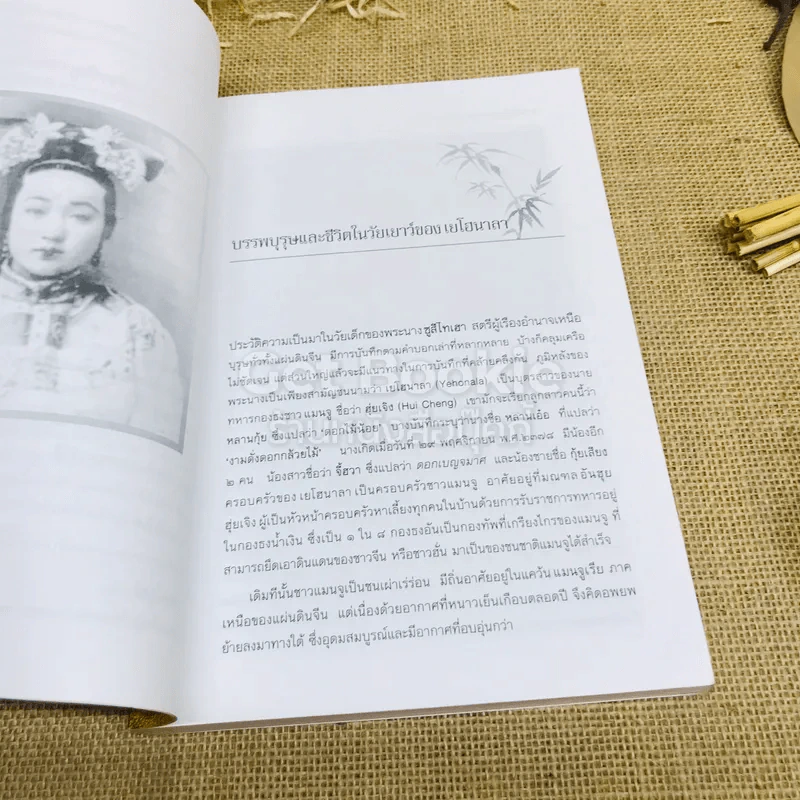 บรรพบุรุษและชีวิตในวัยเยาว์ของ เยโฮนาลา
ประวัติความเป็นมาในวัยเด็กของพระนาง ซูสีไทเฮา สตรีผู้เรืองอำนาจเหนือ
บุรุษทั่วทั้งแผ่นดินจีน มีการบันทึกตามคำบอกเล่าที่หลากหลาย บ้างก็คลุมเครือ
ไม่ชัดเจน แต่ส่วนใหญ่แล้วจะมีแนวทางในการบันทึกที่คล้ายคลึงกัน ภูมิหลังของ
พระนางเป็นเพียงสามัญชนนามว่า เยโฮนาลา (Yehonala) เป็นบุตรสาวของนาย
ทหารกองธงชาว แมนจู ชื่อว่า ฮุ่ยเจิง (Hui Cheng) เขามักจะเรียกลูกสาวคนนี้ว่า
หลานกุ้ย ซึ่งแปลว่า 'ดอกไม้น้อย' บางบันทึกระบุว่านางชื่อ หลานเอ๋อ ที่แปลว่า
'งามดั่งดอกกล้วยไม้' นางเกิดเมื่อวันที่ ๒๙ พฤศจิกายน พ.ศ.๒๓๗๘ มีน้องอีก
๒ คน น้องสาวชื่อว่า จี้ฮวา ซึ่งแปลว่า ดอกเบญจมาศ และน้องชายชื่อ กุ้ยเสียง
ครอบครัวของ เยโฮนาลา เป็นครอบครัวชาวแมนจู อาศัยอยู่ที่มณฑล อันฮุย
ฮุ่ยเจิง ผู้เป็นหัวหน้าครอบครัวหาเลี้ยงทุกคนในบ้านด้วยการรับราชการทหารอยู่
ในกองธงน้ำเงิน ซึ่งเป็น ๑ ใน ๘ กองธงอันเป็นกองทัพที่เกรียงไกรของแมนจู ที่
สามารถยึดเอาดินแดนของชาวจีน หรือชาวฮั่น มาเป็นของชนชาติแมนจูได้สำเร็จ
เดิมทีนั้นชาวแมนจูเป็นชนเผ่าเร่ร่อน มีถิ่นอาศัยอยู่ในแคว้น แมนจูเรีย ภาค
เหนือของแผ่นดินจีน แต่เนื่องด้วยอากาศที่หนาวเย็นเกือบตลอดปี จึงคิดอพยพ
ย้ายลงมาทางใต้ ซึ่งอุดมสมบูรณ์และมีอากาศที่อบอุ่นกว่า